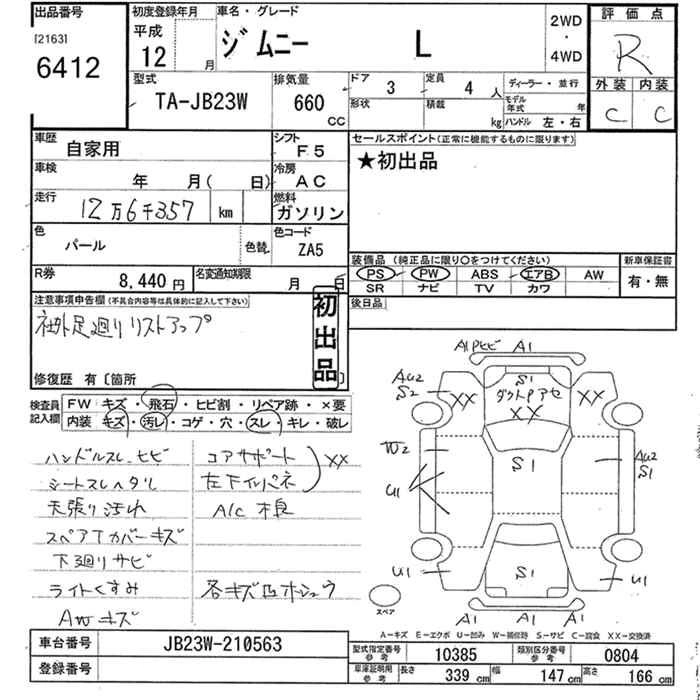 出品番号
[2163]
6412
初度登録年月
平成
12 月
車名・グレード
ジムニー L
2WD
・
4WD
評価点
R
外装 内装
C C
型式
TA-JB23W
排気量
660
CC
ドア 3
定員 4 人
形状
積載 kg
ディーラー・並行
モデル年式 年
ハンドル 左・右
車歴
自家用
シフト
F5
車検
年 月( 日)
冷房
AC
走行
12万6千357 km
燃料
ガソリン
色
パール
色替
色コード
ZA5
R券
8,440 円
名変通知期限
月 日
セールスポイント(正常に機能するものに限ります)
★初出品
装備品 (純正品に限り〇をつけてください)
PS PW ABS エアB AW
SR ナビ TV カワ
新車保証書
有・無
後日品
注意事項申告欄(不具合内容等は具体的に記入して下さい)
社外足廻りリストアップ
初出品
修復歴 有〔箇所 〕
検査員
記入欄
FW キズ・飛石・ヒビ割・リペア跡・×要
内装 キズ・汚れ・コゲ・穴・スレ・キレ・破レ
ハンドルスレ、ヒビ
シートスレヘタリ
天張り汚れ
スペアTカバーキズ
下廻りサビ
ライトくすみ
AWキズ
コアサポート
左下インパネ
XX
A/C 不良
各キズ凹ホシュウ
A1Pヒビ A1
AU2
S2
XX
S1
ダクトPアセ
XX
XX
W2
U1
S1
AU2
S1
U1
S1
U1
スペア
A1 A1 A1
A-キズ E-エクボ U-凹み W-補修跡 S-サビ C-腐食 XX-交換済
車台番号
JB23W-210563
登録番号
型式指定番号
参考
10385
類別区分番号
参考
0804
車庫証明用
参考
長さ 339 cm
幅 147 cm
高さ 166 cm